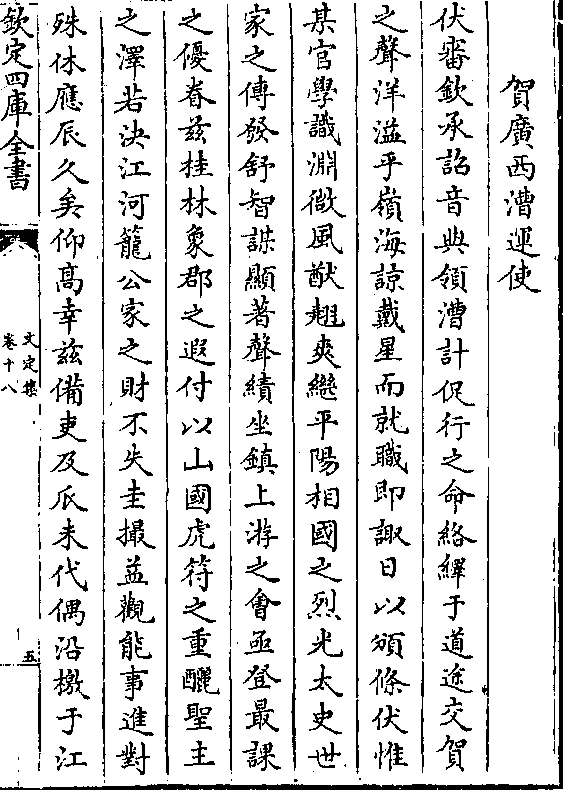 賀廣西漕運使
伏審欽承詔音典領漕計促行之命絡繹于道途交賀
之聲洋溢乎嶺海諒戴星而就職即諏日以頒條伏惟
某官學識淵微風猷翹爽繼平陽相國之烈光太史世
家之傳發舒智謀顯著聲績坐鎮上游之會亟登最課
之優眷兹桂林象郡之遐付以山國虎符之重釃聖主
之澤若決江河籠公家之財不失圭撮益觀能事進對
殊休應辰久矣仰高幸兹備吏及瓜未代偶沿檄于江
欽定四庫全書
文定集
卷十八
五